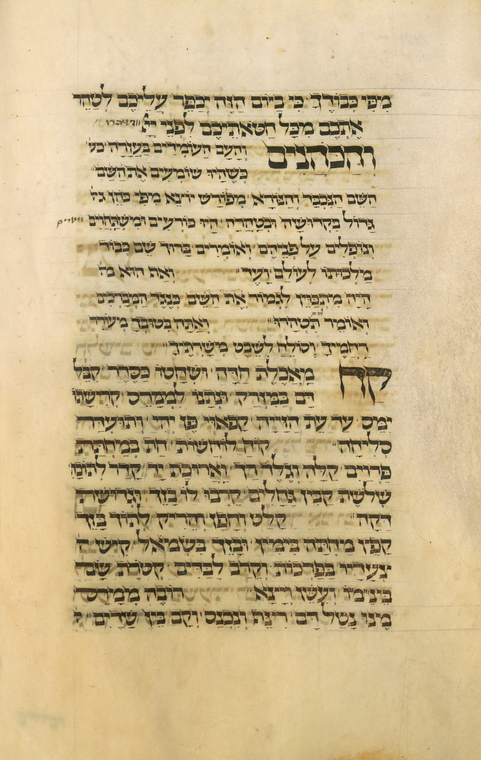 מפי כבודך כי ביום הזה יכפר עליכם לטהר
אתכם מכל חטאתיכם לפני יי
והכהנים והעם העומדים בעזרה כש
כשהיו שומעים את השם
השם הנכבד והנורא מפורש יוצא מפי כהן גד
גדול בקדושה ובטהרה היו כורעים ומשתחוים
ונופלים על פניהם ואומרים ברוך שם כבוד
מלכותו לעולם ועד ואף הוא מת
היה מתכוין לגמור את השם כנגד המברכים
ואומר תטהרו ואתה בטובך מעורר
רחמיך וסולח לשבט משרתיך
קח מאכלת חדה ושחטו כסדר קבל
דם במזרק ונתנו לממרס
ימס עד עת הזיה קפאו פן יהי ותועדרה
סליחה חתת במחתת
פרוים קלה וגלדה דך וארוכת יד קדר להם
שלשת קבין גחלים קרבו לו בזך וגדושת
דקה קלט וחפן והריק לתוך בזך
קפץ מחתה בימין ובזך בשמאל קודש ה
צעדיו בפרכות וקרב לבדים קטרת שם
בינימו ועשן ויצא ממרס
מינו נטל דם ריצה ונכנס וקם בין שדים